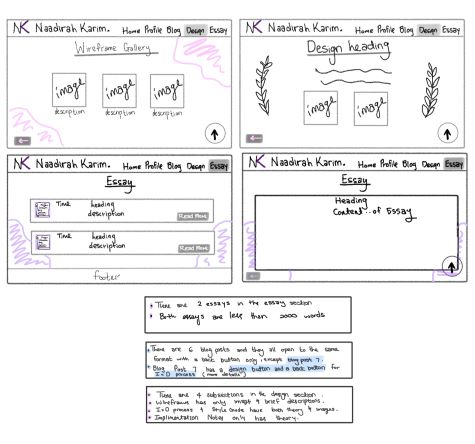 NK Naadirah Karim. Home Profile Blog Design Essay
Wireframe Gallery
image image image
description description description
NK Naadirah Karim. Home Profile Blog Design Essay
Design heading
image image
NK Naadirah Karim. Home Profile Blog Design Essay
Essay
Time heading
description
Read More
Time heading
description
Read More
footer
NK Naadirah Karim. Home Profile Blog Design Essay
Essay
Heading
Content of Essay
There are 2 essays in the essay section
Both essays are less than 2000 words
There are 6 blog posts and they all open to the same
format with a back button only except blog post 7.
Blog Post 7 has a design button and a back button for
I×D process (more details)
There are 4 subsections in the design section.
Wireframes has only images & brief descriptions.
I×D process & Style Guide have both theory & images.
Implimentation Notes only has theory.